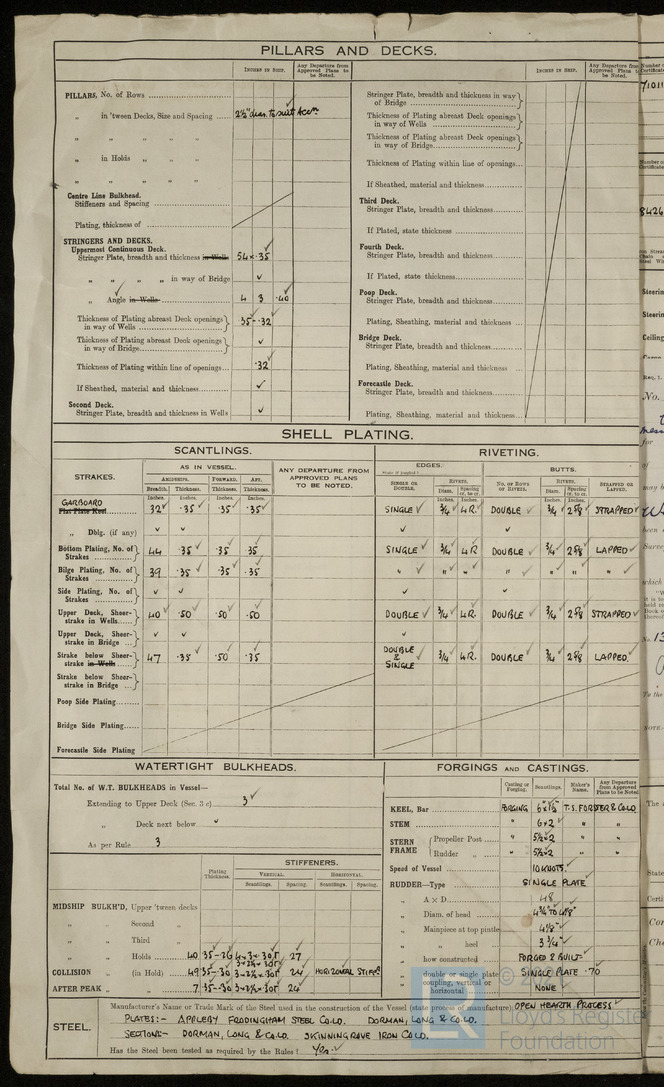 PILLARS AND DECKS.
INCHES IN SHIP. Any Departure from Approved Plans to be Noted.
PILLARS, No. of Rows
„ in 'tween Decks, Size and Spacing 2½" dia. to suit Accn
„ „ „ „
„ in Holds „ „
„ „ „ „
Centre Line Bulkhead.
Stiffeners and Spacing
Plating, thickness of
STRINGERS AND DECKS.
Uppermost Continuous Deck.
Stringer Plate, breadth and thickness in Wells 54 × .35
„ „ „ „ in way of Bridge ✓
„ Angle in Wells 4 3 .40
Thickness of Plating abreast Deck openings in way of Wells .35-.32
Thickness of Plating abreast Deck openings in way of Bridge ✓
Thickness of Plating within line of openings .32
If Sheathed, material and thickness ✓
Second Deck.
Stringer Plate, breadth and thickness in Wells ✓
INCHES IN SHIP. Any Departure from Approved Plans to be Noted.
Stringer Plate, breadth and thickness in way of Bridge
Thickness of Plating abreast Deck openings in way of Wells
Thickness of Plating abreast Deck openings in way of Bridge
Thickness of Plating within line of openings
If Sheathed, material and thickness
Third Deck.
Stringer Plate, breadth and thickness
If Plated, state thickness
Fourth Deck.
Stringer Plate, breadth and thickness
If Plated, state thickness
Poop Deck.
Stringer Plate, breadth and thickness
Plating, Sheathing, material and thickness
Bridge Deck.
Stringer Plate, breadth and thickness
Plating, Sheathing, material and thickness
Forecastle Deck.
Stringer Plate, breadth and thickness
Plating, Sheathing, material and thickness
SHELL PLATING.
SCANTLINGS. RIVETING.
STRAKES. AS IN VESSEL. ANY DEPARTURE FROM APPROVED PLANS TO BE NOTED. EDGES. BUTTS.
AMIDSHIPS. FORWARD. AFT. SINGLE OR DOUBLE. RIVETS. NO. OF ROWS OF RIVETS. RIVETS. STRAPPED OR LAPPED.
Breadth. Thickness. Thickness. Thickness. Diam. Spacing cr. to cr. Diam. Spacing cr. to cr.
Inches. Inches. Inches. Inches. Inches. Inches. Inches. Inches.
GARBOARD
Flat Plate Keel 32 .35 .35 .35 SINGLE ¾ 4R DOUBLE ¾ 2⅝ STRAPPED
„ Dblg. (if any) ✓ ✓ ✓ ✓
Bottom Plating, No. of Strakes 44 .35 .35 35 SINGLE ¾ 4R DOUBLE ¾ 2⅝ LAPPED
Bilge Plating, No. of Strakes 39 .35 .35 .35 " " " " " " "
Side Plating, No. of Strakes ✓ ✓ ✓ ✓
Upper Deck, Sheer-strake in Wells 40 .50 .50 .50 DOUBLE ¾ 4R. DOUBLE ¾ 2⅝ STRAPPED
Upper Deck, Sheer-strake in Bridge ✓ ✓ ✓
Strake below Sheer-strake in Wells 47 .35 .50 .35 DOUBLE & SINGLE ¾ 4R. DOUBLE ¾ 2⅝ LAPPED.
Strake below Sheer-strake in Bridge
Poop Side Plating
Bridge Side Plating
Forecastle Side Plating
WATERTIGHT BULKHEADS.
Total No. of W.T. BULKHEADS in Vessel—
Extending to Upper Deck (Sec. 3 c) 3
„ Deck next below ✓
As per Rule 3
Plating Thickness. STIFFENERS.
VERTICAL. HORIZONTAL.
Scantlings. Spacing. Scantlings. Spacing.
MIDSHIP BULKH'D, Upper 'tween decks
„ „ Second „
„ „ Third „
„ „ Holds
COLLISION „ (in Hold) 24 HORIZONTAL
AFTER PEAK „ „ 24
FORGINGS AND CASTINGS.
Casting or Forging. Scantlings. Maker's Name. Any Departure from Approved Plans to be Noted.
KEEL, Bar FORGING 6"×1½" T.S. FORSTER & CO. LD.
STEM " 6×2 " "
STERN FRAME Propeller Post " 5½×2 " "
Rudder „ " 5½×2 " "
Speed of Vessel 10 KNOTS.
RUDDER—Type SINGLE PLATE
„ A × D 48
„ Diam. of head
„ Mainpiece at top pintle 4⅛"
„ „ heel 3¾"
„ how constructed FORGED & BUILT
„ double or single plate SINGLE PLATE .70
„ coupling, vertical or horizontal NONE
STEEL.
Manufacturer's Name or Trade Mark of the Steel used in the construction of the Vessel (state process of manufacture) OPEN HEARTH PROCESS
PLATES:- APPLEBY FRODINGHAM STEEL CO. LD. DORMAN, LONG & CO. LD.
SECTIONS:- DORMAN, LONG & CO. LD. SKINNINGROVE IRON CO. LD.
Has the Steel been tested as required by the Rules? Yes.
Lloyd's Register
Foundation